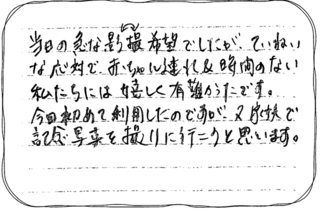 当日の急な影撮希望でしたが、ていねい
な応対で、赤ちゃん連れ&時間のない
私たちには嬉しく有難かったです。
今回初めて利用したのですが、又家族で
記念写真を撮りに行こうと思います。